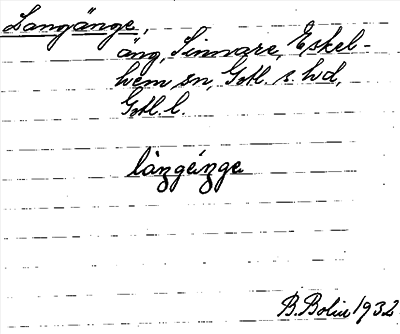 Langänge,
äng, Sinnare, Eskel-
hem sn, Gotl. s. hd,
Gotl. l.
làŋgéŋge
B. Bolin 1932